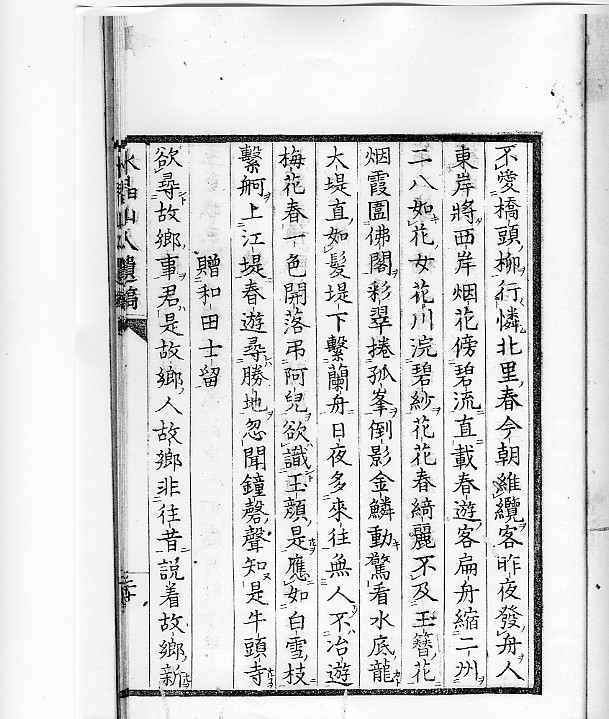 不愛橋頭柳行憐北里春今朝維纜客昨夜發舟人
東岸將西岸烟花傍碧流直載春遊客扁舟縮二州
二八如花女花川浣碧紗花花春綺麗不及玉簪花
烟霞圍佛閣彩翠捲孤峯倒影金鱗動驚看水底龍
大堤直如髮堤下繫蘭舟日夜多來往無人不冶遊
梅花春一色開落弔阿兒欲識玉顏是應如白雪枝
繫舸上江堤春遊尋勝地忽聞鐘磬聲知是牛頭寺
贈和田士留
欲尋故鄉事君是故鄉人故鄉非往昔說着故鄉新
水晶山人遺稿